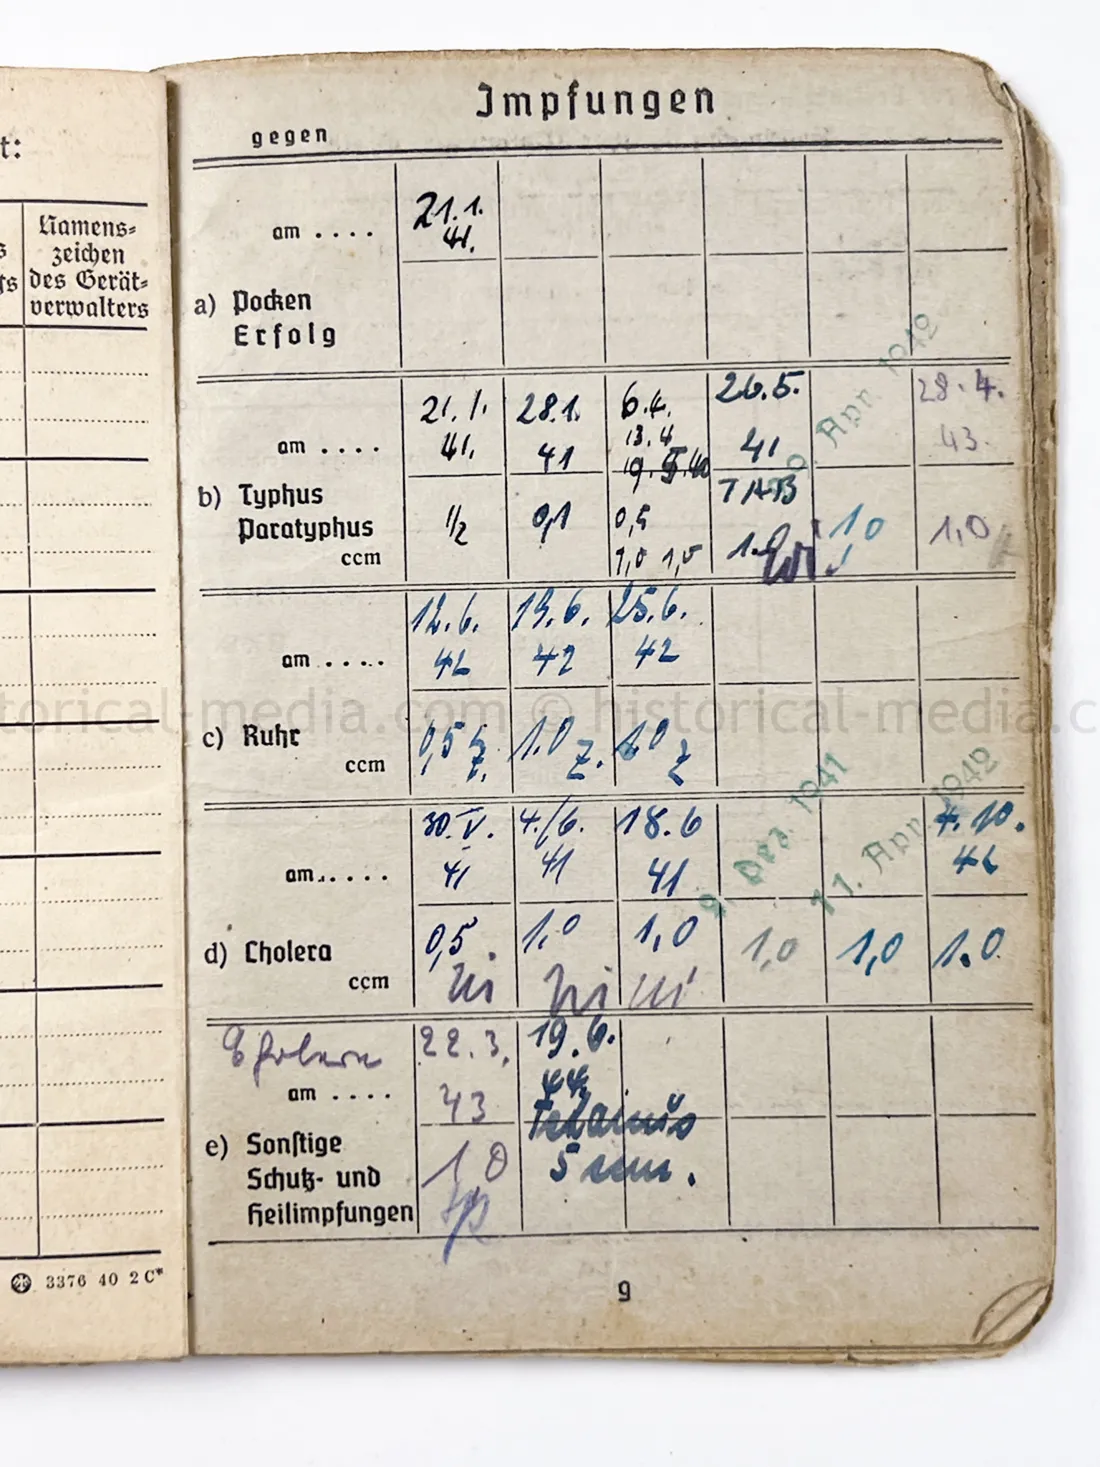 t:
s
gs
Namens=
zeichen
des Gerät=
verwalters
3376 40 2 C*
Impfungen
gegen
am . . . .
21.1.
41.
a) Pocken
Erfolg
am . . . .
21.1. 28.1. 6.4. 26.5. 28.4.
41. 41 13.4 41 43.
Apr. 1942
b) Typhus
Paratyphus
ccm
TAB
1/2 0,1 0,5 1,0 1,0
1,0 1,0
am . . . .
12.6. 19.6. 25.6.
42 42 42
c) Ruhr
ccm
0,5 Z. 1.0 Z. 1.0 Z
am . . . . .
30.V. 4./6. 18.6 9. Dez. 1941 11. Apr. 1942 7.10.
41 41 41 42
d) Cholera
ccm
0,5 1,0 1,0 1,0 1,0 1.0
am . . . .
22.3. 19.6.
43 44
e) Sonstige
Schutz- und
Heilimpfungen
1,0 Tetanus
9
torical-media.com © historical-media.c